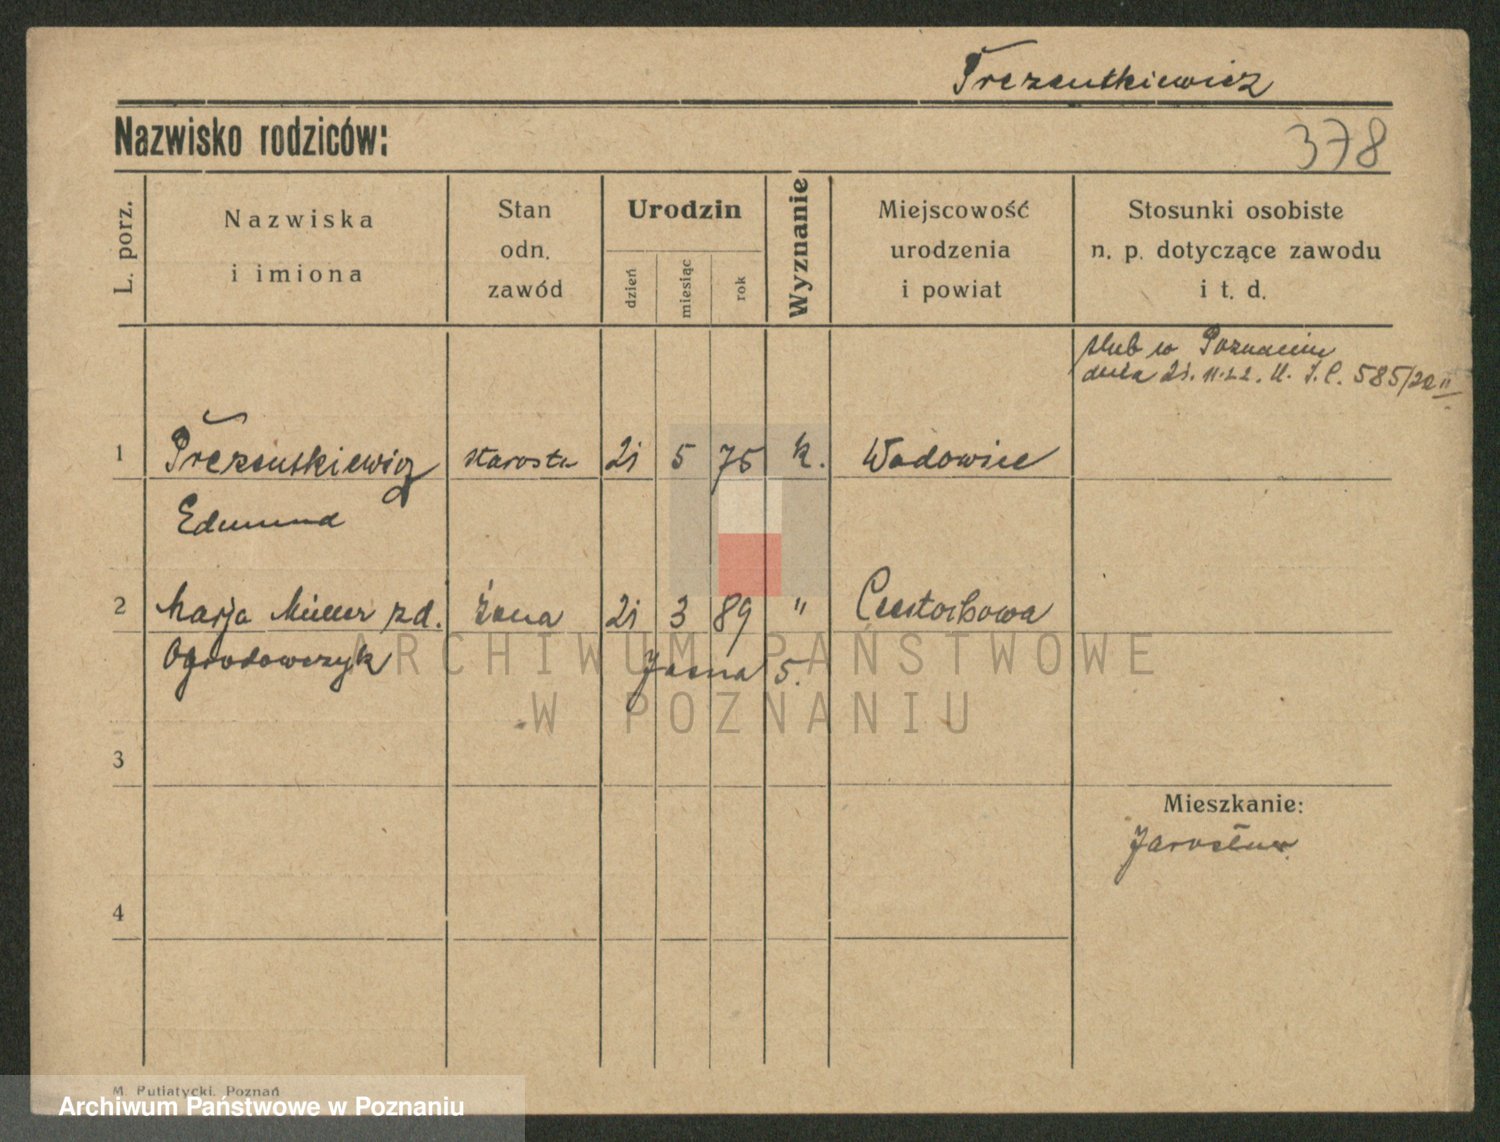 Prezentkiewicz
Nazwisko rodziców:
378
L. porz.
Nazwiska
i imiona
Stan
odn.
zawód
Urodzin
dzień
miesiąc
rok
Wyznanie
Miejscowość
urodzenia
i powiat
Stosunki osobiste
n. p. dotyczące zawodu
i t. d.
ślub w Poznaniu
dnia 21. 11. 22. U. S. C. 585/22 II
1 Prezentkiewicz starosta 21 5 75 k. Wadowice
Edmund
2 Marja Müller zd. żona 21 3 89 " Częstochowa
Ogrodowczyk Jasna 5.
ARCHIWUM PAŃSTWOWE
W POZNANIU
3
Mieszkanie:
Jarosław
4
M. Putiatycki, Poznań
Archiwum Państwowe w Poznaniu